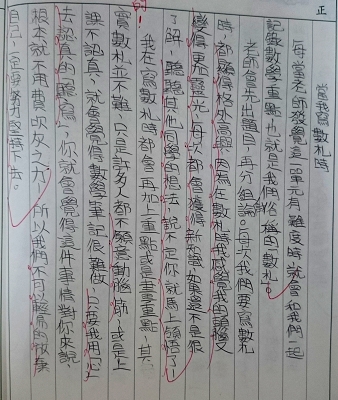 正
當我寫數札時
每當老師發覺這一單元有難度時就會和我們一起
記錄數學重點也就是我們俗稱的數札。
老師會先出題目,再分組論。每次我們要寫數札
時,都顯得格外高興,因為在數札時我感覺我的腦袋又
變得更發光,每次都會獲得新知識,如果還不是很
了解,聽聽其他同學的想法,說不定你就馬上領悟了。
我在寫數札時都會再加上重點或是畫重點,其
的!
實數札並不難,只是許多人都不願意動腦筋,或是上
課不認真,就會覺得數學筆記很難做,只要我用心
去認真的聽寫,你就會覺得這件事情對你來說
根本就不用費吹灰之力,所以我們不可以輕易的放棄
自己,一定要努力堅持下去。